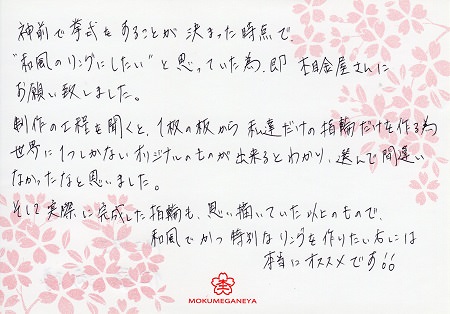 神前で挙式をあることが決まった時点で
"和風のリングにしたい"と思っていた為、即 杢目金屋さんに
お願い致しました。
制作の工程を聞くと、1枚の板から私達だけの指輪だけを作る為
世界に1つしかないオリジナルのものが出来るとわかり、選んで間違い
なかったなと思いました。
そして実際に完成した指輪も、思い描いていた以上のもので、
和風でかつ特別なリングを作りたい方には
本当にオススメです!!
MOKUMEGANEYA